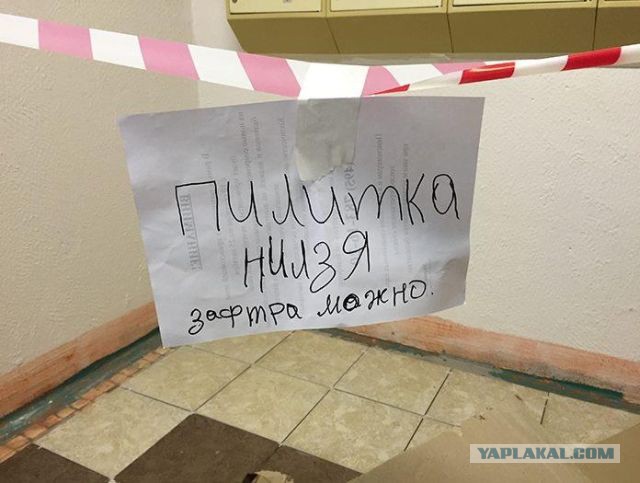 ПИЛИТКА
НИЛЗЯ
зафтра можно.
YAPLAKAL.COM